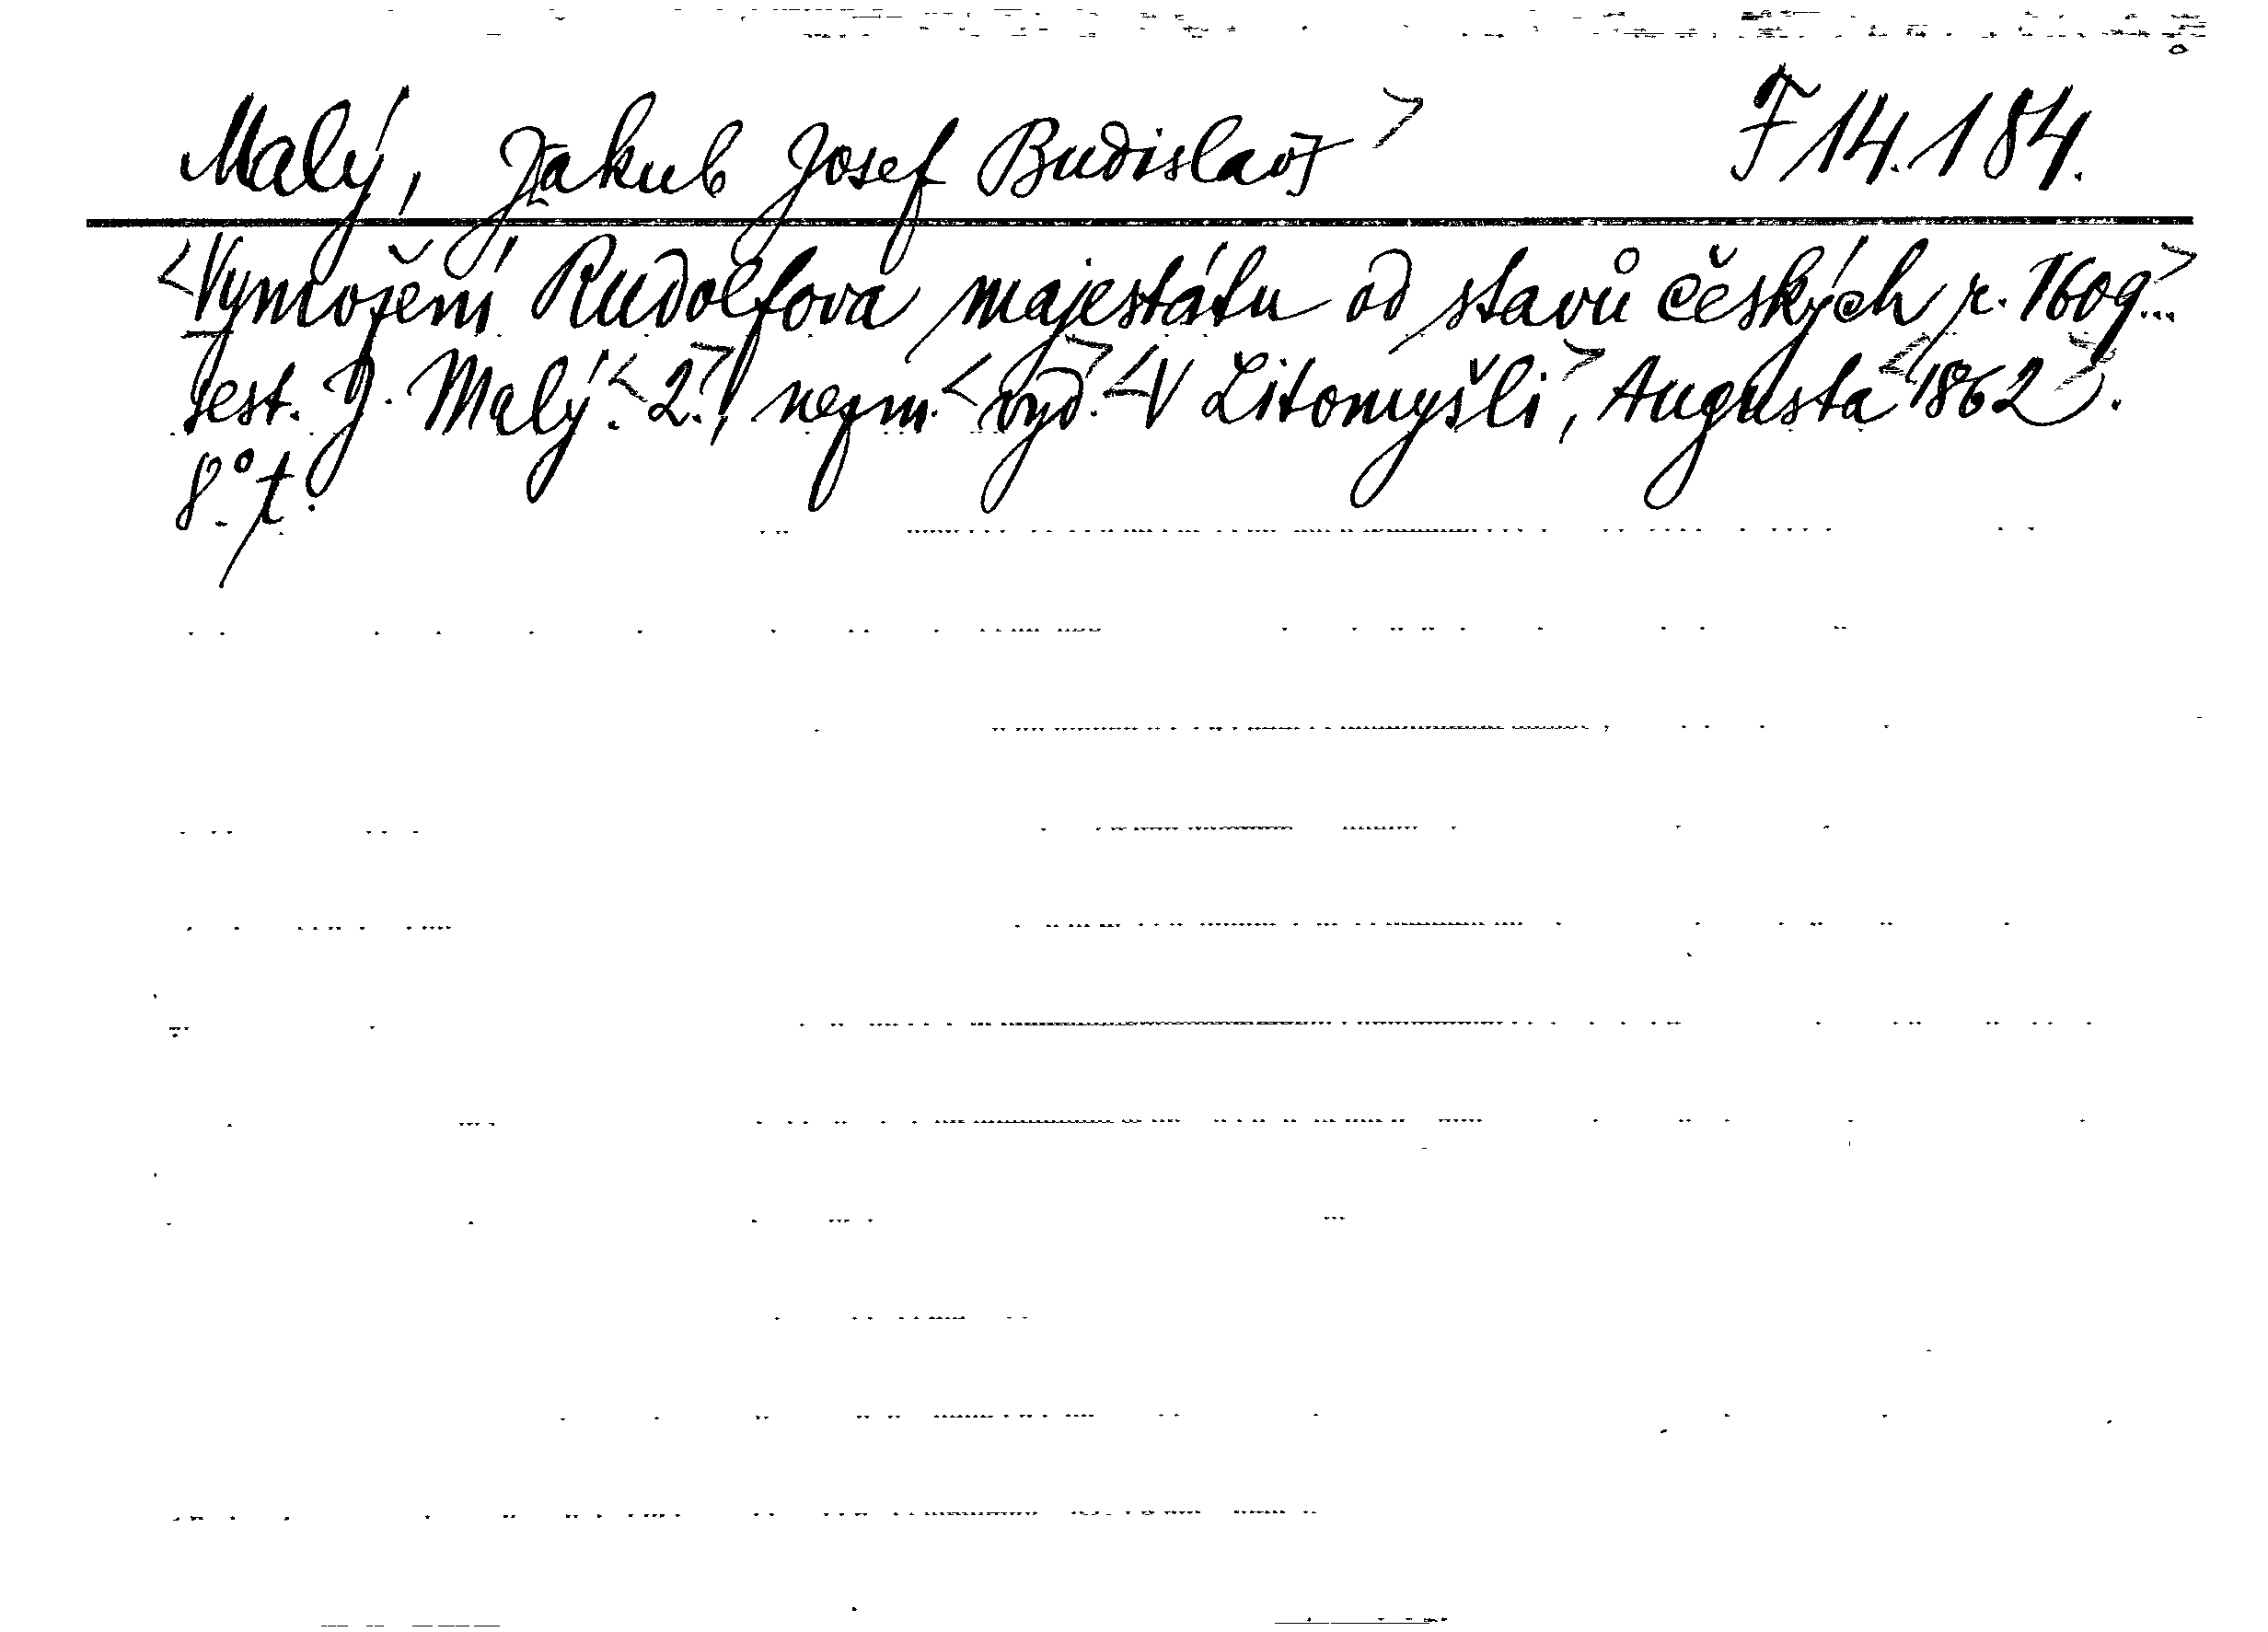 Malý, J[akub Josef Budislav]> F 14.184.
<Vymožení Rudolfova majestátu od stavů českých r. 1609...>
sest. J. Malý. <2.>, nezm. <vyd.> <V Litomyšli>, Augusta <1862>.
8° t.